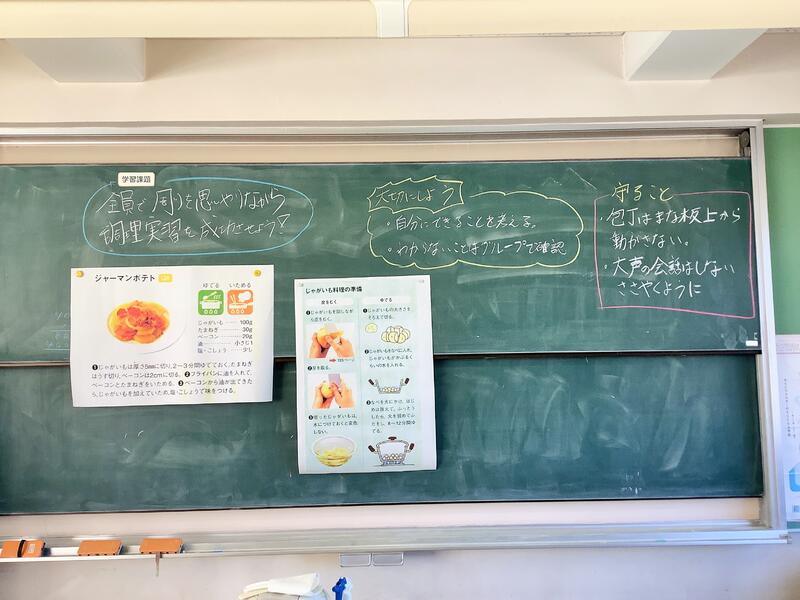 学習課題
全員で周りを思いやりながら
調理実習を成功させよう!
大切にしよう
・自分にできることを考える。
・わからないことはグループで確認
守ること
・包丁はまな板上から
動かさない。
・大声の会話はしない
ささやくように
ジャーマンポテト
ゆでる いためる
じゃがいも 100g
たまねぎ 30g
ベーコン 20g
油 小さじ1
塩・こしょう 少し
❶じゃがいもは厚さ5mmに切り、2〜3分間ゆでておく。たまねぎ
はうす切り、ベーコンは2cmに切る。❷フライパンに油を入れて、
ベーコンとたまねぎをいためる。❸ベーコンから油が出てきた
ら、じゃがいもを加えていため、塩・こしょうで味をつける。
じゃがいも料理の準備
皮をむく
❶じゃがいもを回しながら
皮をむく。
❷芽を取る。
❸切ったじゃがいもは、
水につけておくと変色
しない。
ゆでる
❶じゃがいもの大きさを
そろえて切る。
❷じゃがいもをなべに入れ、
じゃがいもがかぶるく
らいの水を入れる。
❸なべを火にかけ、はじ
めは強火で、ふっとう
したら、火を弱めてふ
たをし、8〜12分間ゆ
でる。